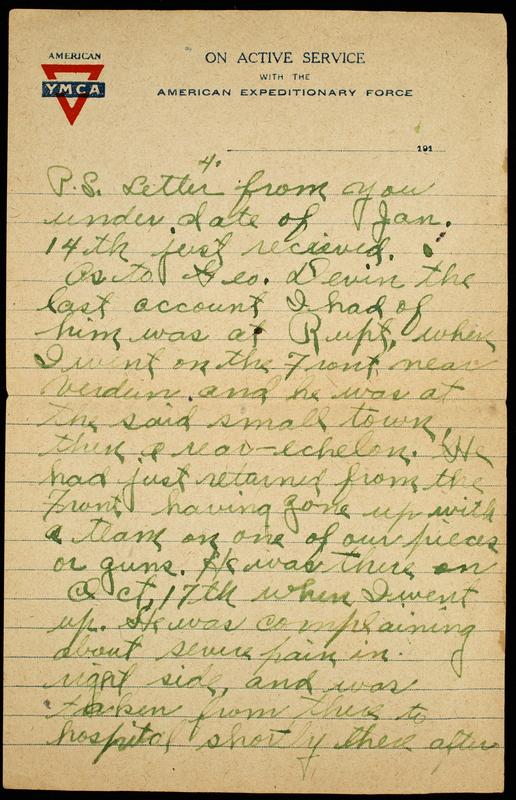 AMERICAN
YMCA
ON ACTIVE SERVICE
WITH THE
AMERICAN EXPEDITIONARY FORCE
191
4.
P.S. Letter from you
under date of Jan.
14th just recieved.
As to Geo. Devin the
last account I had of
him was at Rupt, when
I went on the Front near
Verdun and he was at
the said small town,
then a rear-echelon. He
had just retured from the
Front having gone up with
a team on one of our pieces
or guns. He was there on
Oct, 17th when I went
up. He was complaining
about severe pain in
right side, and was
taken from there to
hospital shortly there after